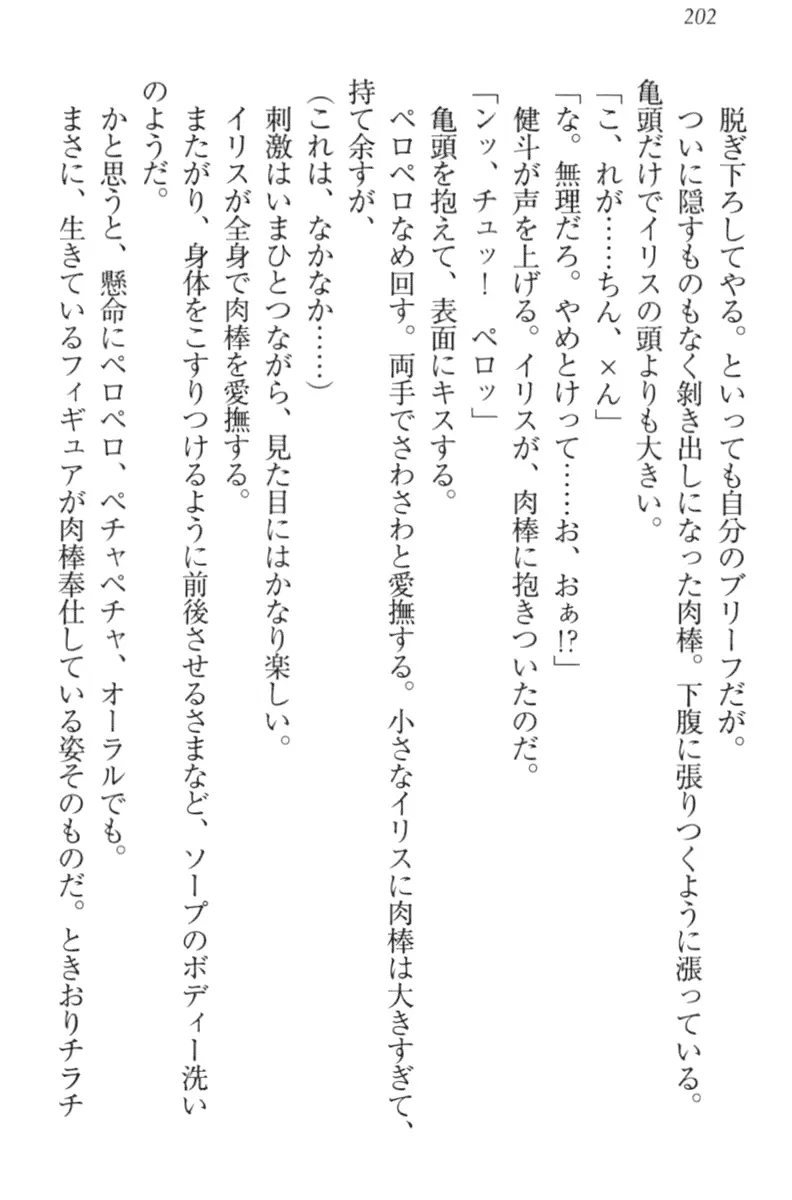 202
脱ぎ下ろしてやる。といっても自分のブリーフだが。
ついに隠すものもなく剝き出しになった肉棒。下腹に張りつくように漲っている。
亀頭だけでイリスの頭よりも大きい。
「こ、れが……ちん、×ん」
「な。無理だろ。やめとけって……お、おぁ!?」
健斗が声を上げる。イリスが、肉棒に抱きついたのだ。
「ンッ、チュッ！　ペロッ」
亀頭を抱えて、表面にキスする。
ペロペロなめ回す。両手でさわさわと愛撫する。小さなイリスに肉棒は大きすぎて、
持て余すが、
（これは、なかなか……）
刺激はいまひとつながら、見た目にはかなり楽しい。
イリスが全身で肉棒を愛撫する。
またがり、身体をこすりつけるように前後させるさまなど、ソープのボディー洗い
のようだ。
かと思うと、懸命にペロペロ、ペチャペチャ、オーラルでも。
まさに、生きているフィギュアが肉棒奉仕している姿そのものだ。ときおりチラチ